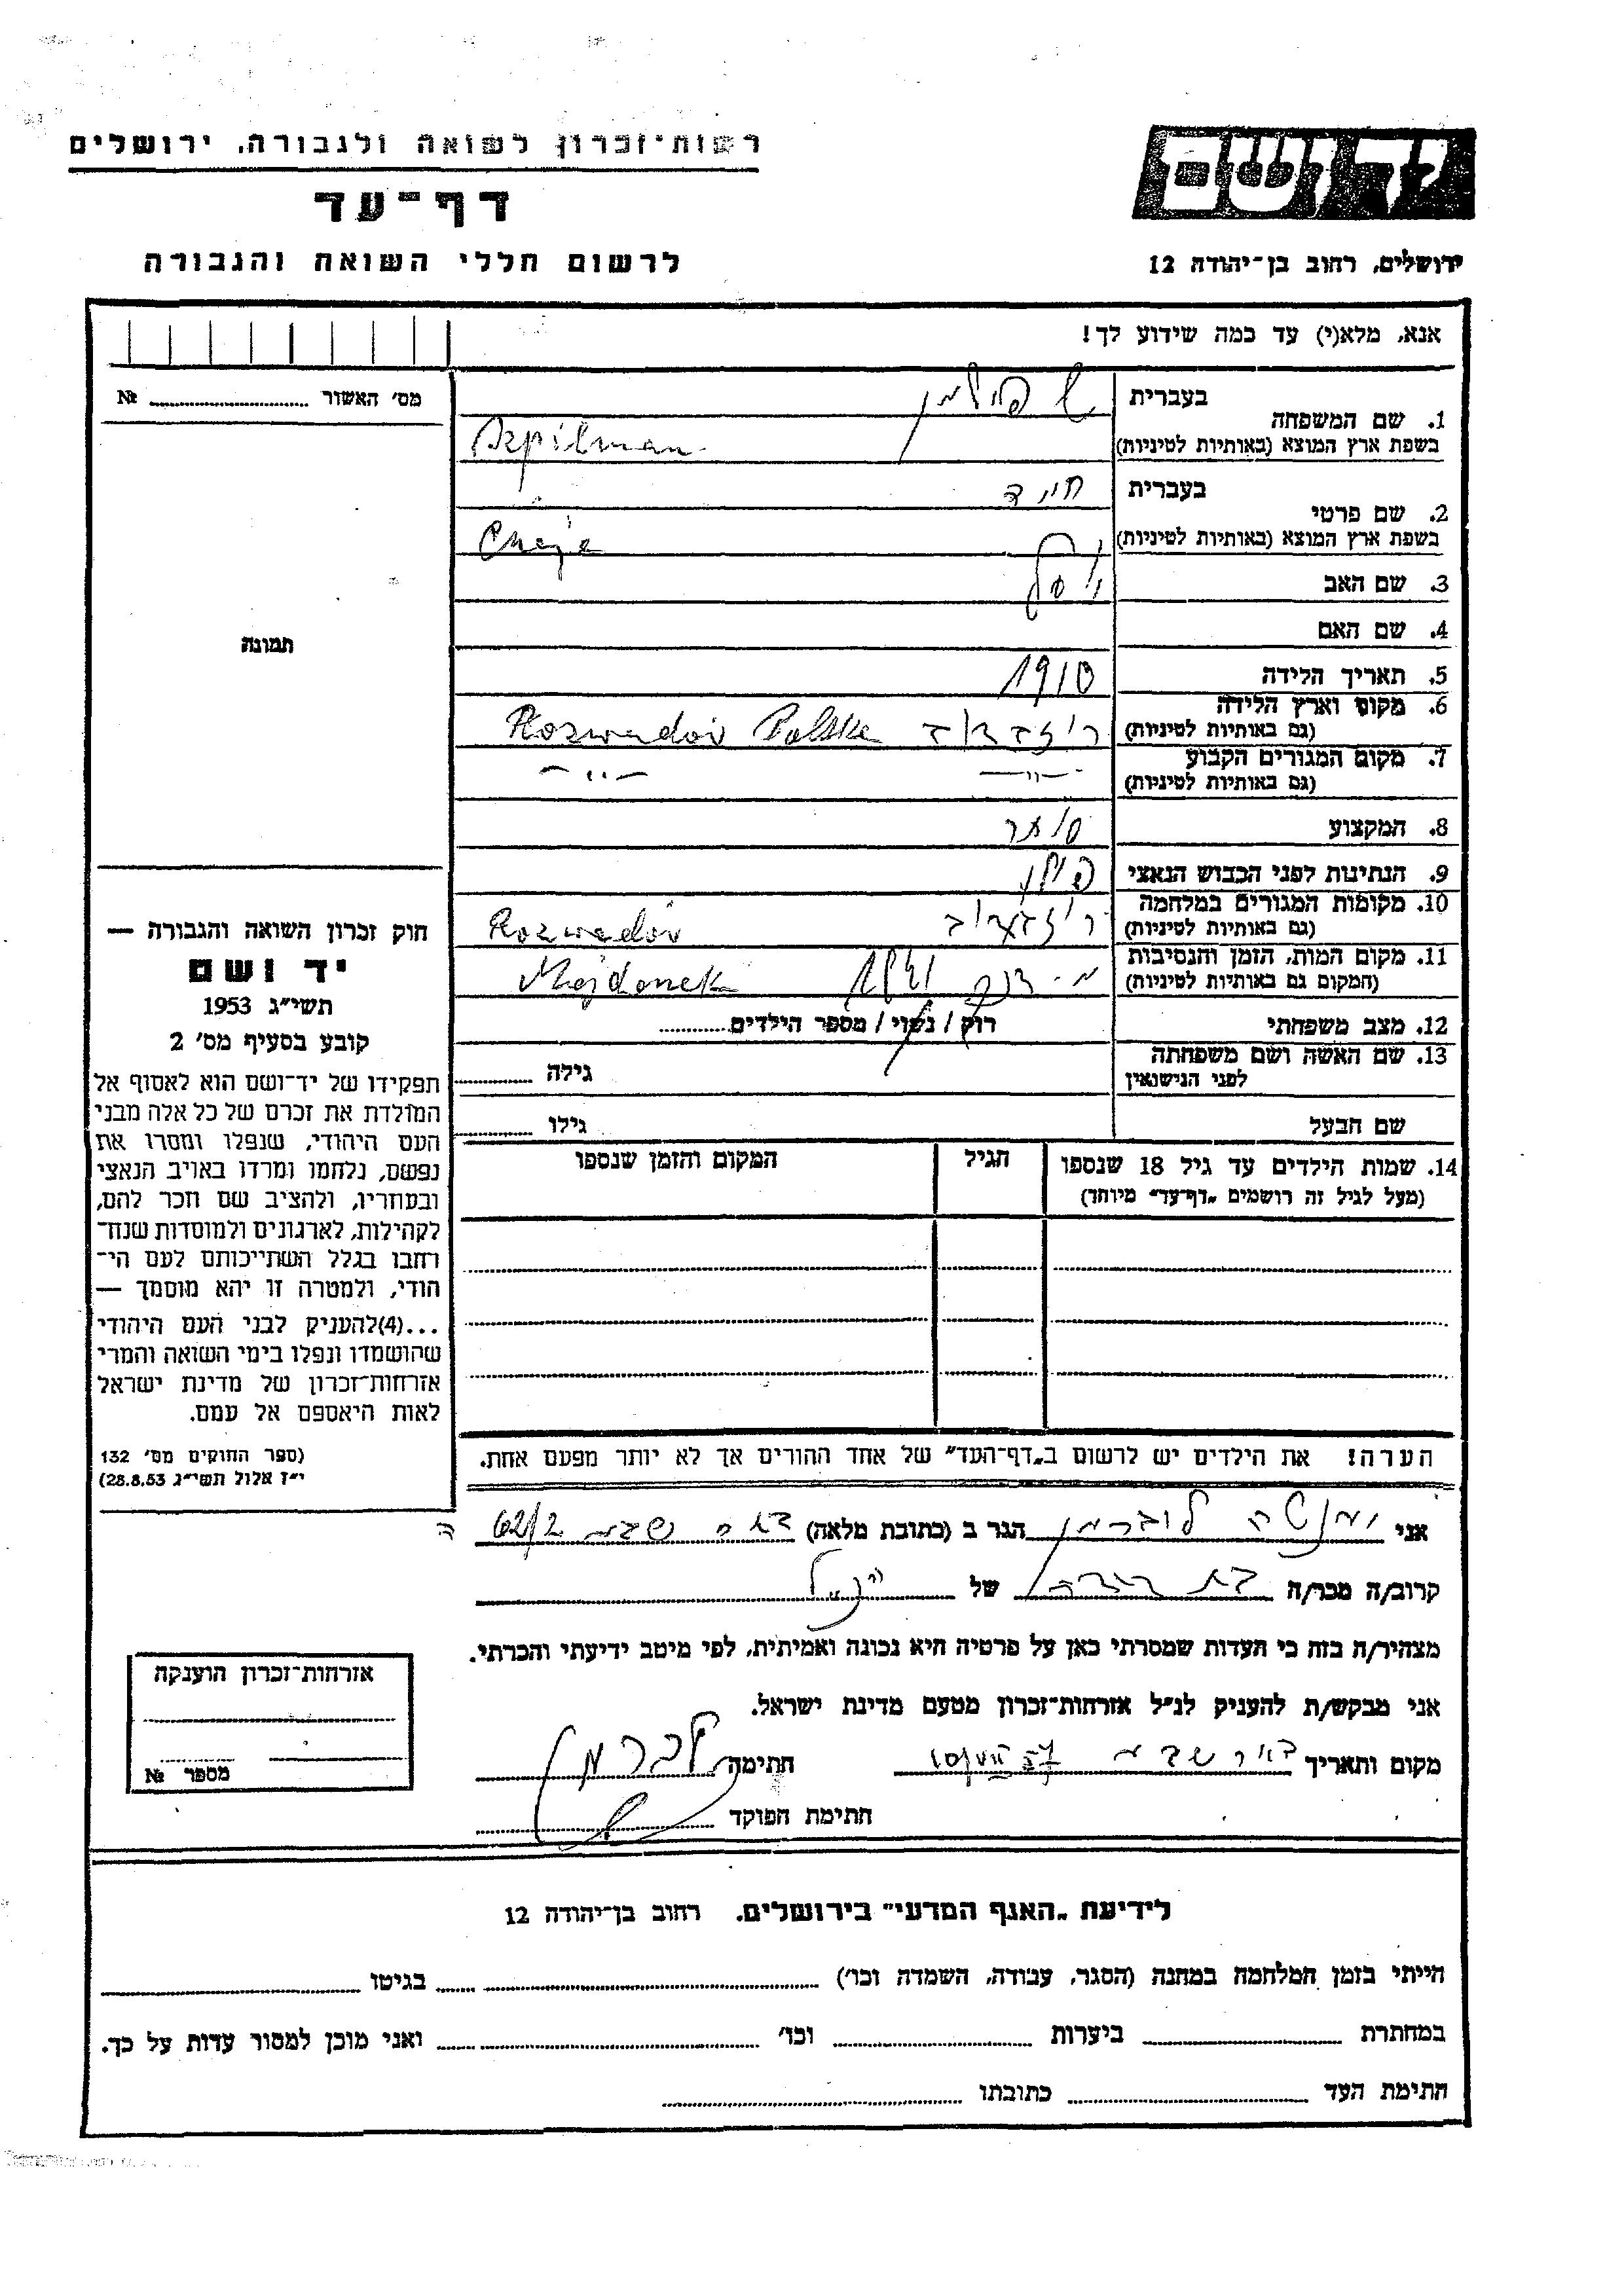 רשות-זכרון לשואה ולגבורה, ירושלים
יד ושם
דף-עד
לרשום חללי השואה והגבורה
ירושלים, רחוב בן-יהודה 12
אנא, מלא(י) עד כמה שידוע לך!
מס' האשור № 
בעברית שפילמן
1. שם המשפחה
בשפת ארץ המוצא (באותיות לטיניות) Szpilman
בעברית חיה
2. שם פרטי
בשפת ארץ המוצא (באותיות לטיניות) Chaja
3. שם האב יוסף
4. שם האם
5. תאריך הלידה 1910
6. מקום וארץ הלידה
(גם באותיות לטיניות) Rozwadów Polska
7. מקום המגורים הקבוע
(גם באותיות לטיניות) -"- -"-
8. המקצוע סוחר
9. הנתינות לפני הכבוש הנאצי פולין
10. מקומות המגורים במלחמה
(גם באותיות לטיניות) Rozwadów
11. מקום המות, הזמן והנסיבות
(המקום גם באותיות לטיניות) Majdanek
12. מצב משפחתי רוק / נשוי / מספר הילדים
13. שם האשה ושם משפחתה
לפני הנישואין גילה
שם הבעל גילו
14. שמות הילדים עד גיל 18 שנספו הגיל המקום והזמן שנספו
(מעל לגיל זה רושמים „דף-עד" מיוחד)
הערה! את הילדים יש לרשום ב„דף-העד" של אחד ההורים אך לא יותר מפעם אחת.
תמונה
חוק זכרון השואה והגבורה —
יד ושם
תשי"ג 1953
קובע בסעיף מס' 2
תפקידו של יד-ושם הוא לאסוף אל
המולדת את זכרם של כל אלה מבני
העם היהודי, שנפלו ומסרו את
נפשם, נלחמו ומרדו באויב הנאצי
ובעוזריו, ולהציב שם וזכר להם,
לקהילות, לארגונים ולמוסדות שנח-
רבו בגלל השתייכותם לעם הי-
הודי, ולמטרה זו יהא מוסמך —
...(4)להעניק לבני העם היהודי
שהושמדו ונפלו בימי השואה והמרי
אזרחות-זכרון של מדינת ישראל
לאות היאספם אל עמם.
(ספר החוקים מס' 132
י"ז אלול תשי"ג 28.8.53)
אני מנשה לוברמן הגר ב (כתובת מלאה) באר שבע 62/2
קרוב/ה מכר/ה של
מצהיר/ה בזה כי העדות שמסרתי כאן על פרטיה היא נכונה ואמיתית, לפי מיטב ידיעתי והכרתי.
אני מבקש/ת להעניק לנ"ל אזרחות-זכרון מטעם מדינת ישראל.
מקום ותאריך באר שבע חתימה לברמן
חתימת הפוקד
אזרחות-זכרון הוענקה
מספר №
לידיעת „האגף המדעי" בירושלים. רחוב בן-יהודה 12
הייתי בזמן המלחמה במחנה (הסגר, עבודה, השמדה וכו') בגיטו
במחתרת ביערות וכו' ואני מוכן למסור עדות על כך.
חתימת העד כתובתו